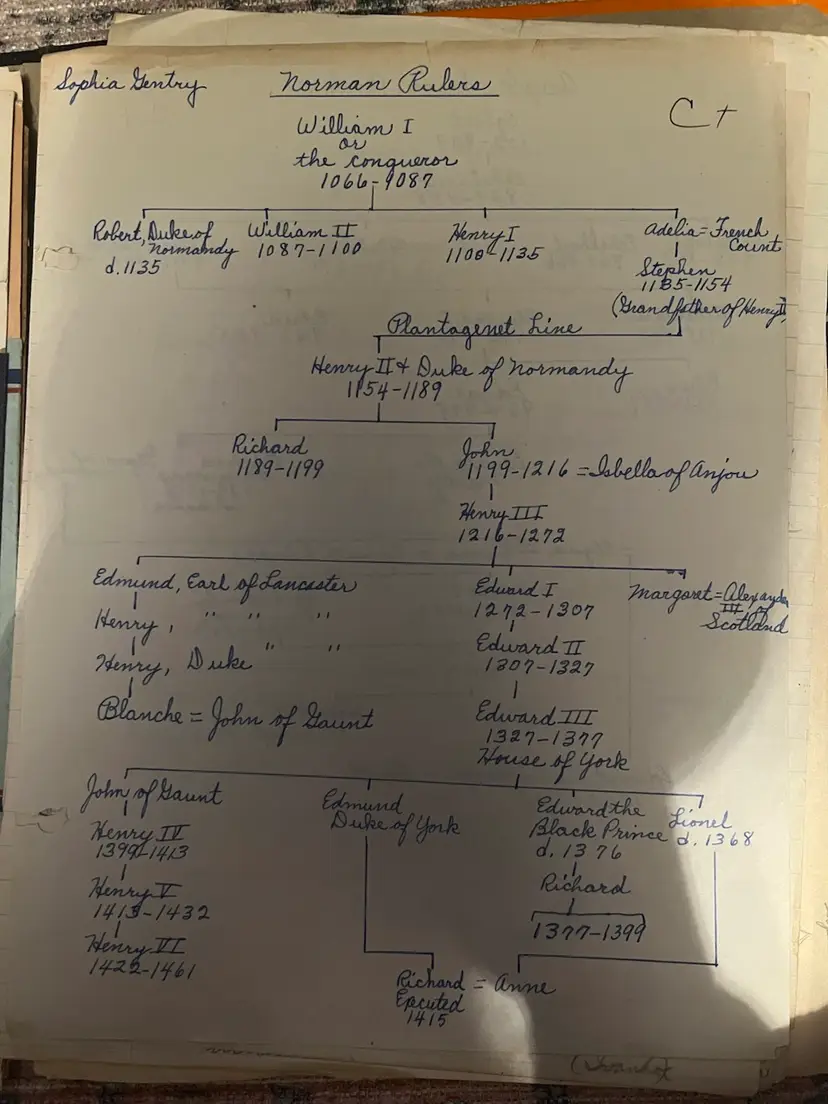 Sophia Gentry
Norman Rulers
C+
William I
or
the conqueror
1066-1087
Robert, Duke of
Normandy
d. 1135
William II
1087-1100
Henry I
1100-1135
Adelia = French
Count
Stephen
1135-1154
(Grandfather of Henry II)
Plantagenet Line
Henry II + Duke of Normandy
1154-1189
Richard
1189-1199
John
1199-1216 = Isbella of Anjou
Henry III
1216-1272
Edmund, Earl of Lancaster
Henry, " " "
Henry, Duke " "
Blanche = John of Gaunt
Edward I
1272-1307
Edward II
1307-1327
Edward III
1327-1377
House of York
Margaret = Alexander
III of
Scotland
John of Gaunt
Henry IV
1399-1413
Henry V
1413-1432
Henry VI
1422-1461
Edmund
Duke of York
Edward the
Black Prince
d. 1376
Richard
1377-1399
Lionel
d. 1368
Richard = Anne
Executed
1415